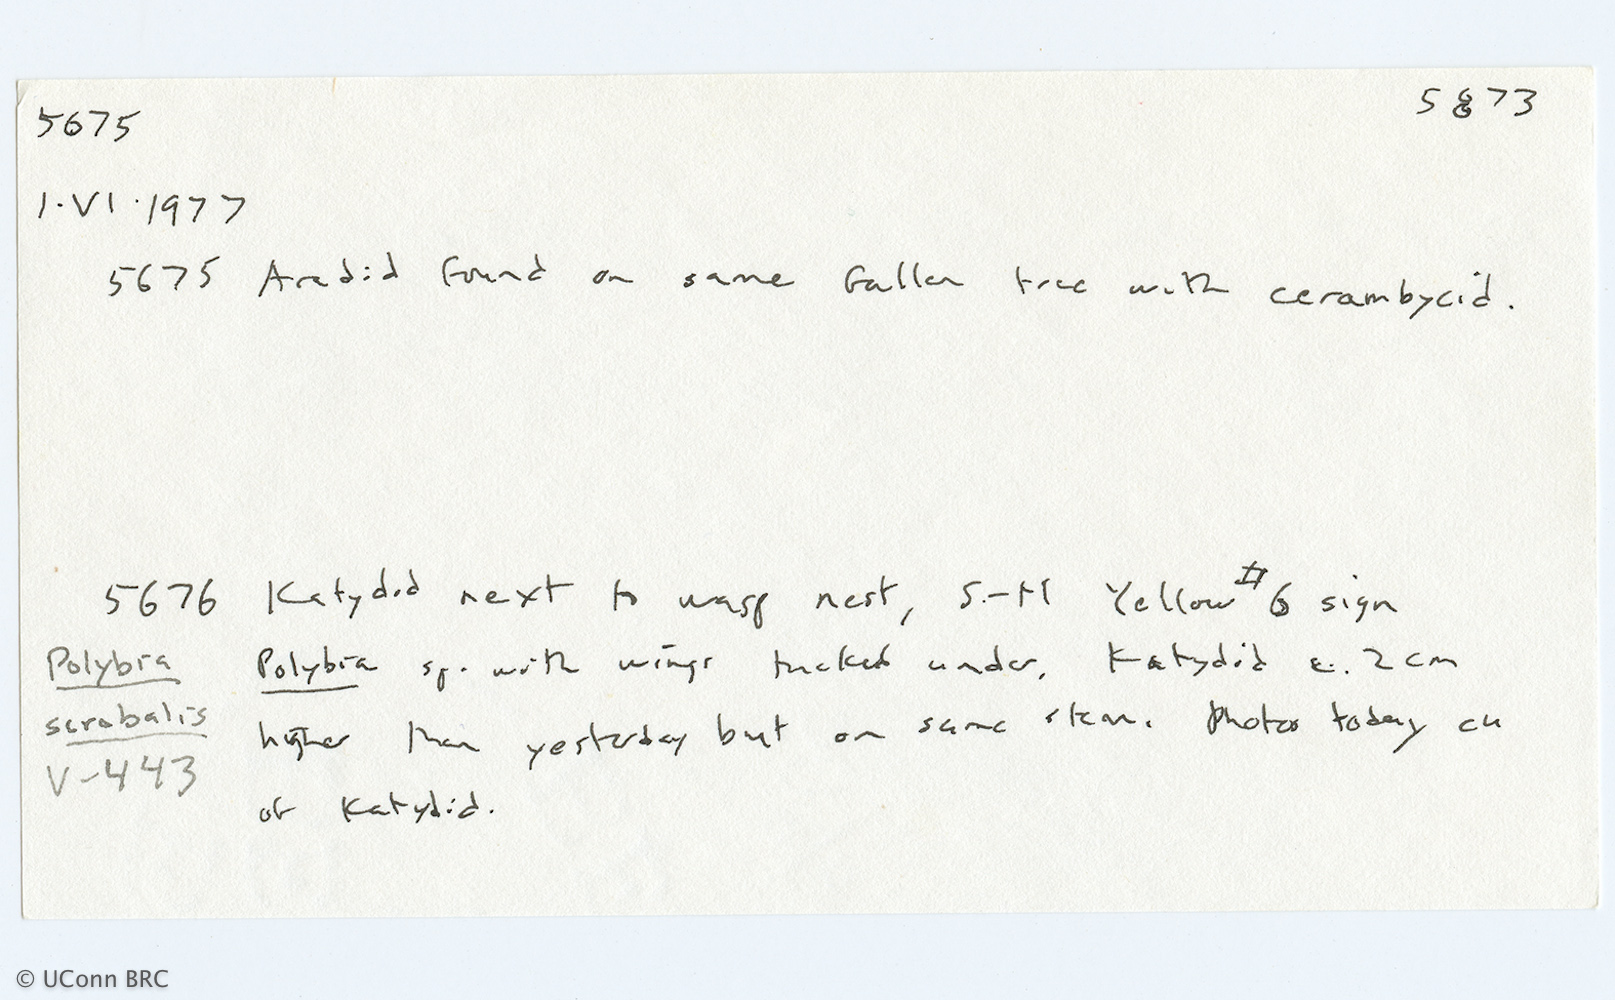 5675 5873
1·VI·1977
5675 Aradid found on same fallen tree with cerambycid.
5676 Katydid next to wasp nest, S.-M Yellow #6 sign
Polybia Polybia sp. with wings tucked under. Katydid c. 2 cm
scrobalis higher than yesterday but on same stem. Photos today cu
V-443
of Katydid.
© UConn BRC